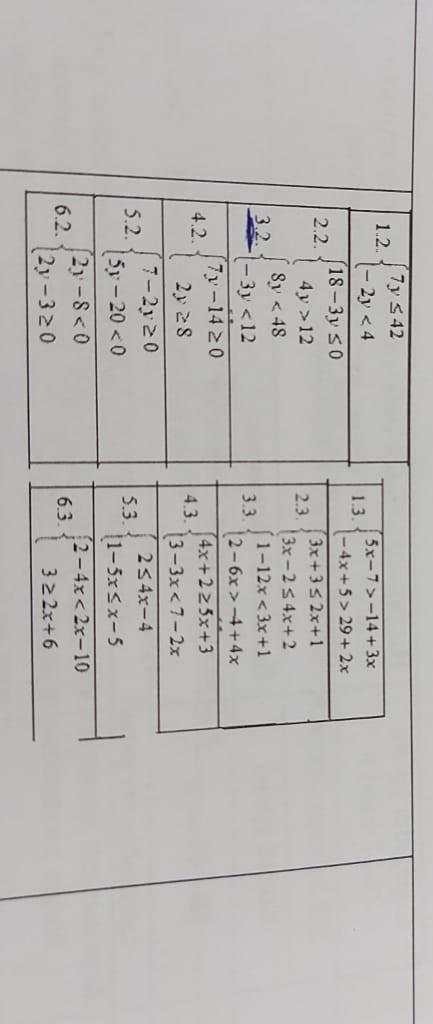 1.2. {7y ≤ 42
{− 2y < 4
2.2. {18 − 3y ≤ 0
{4y > 12
3.2. {8y < 48
{− 3y < 12
4.2. {7y − 14 ≥ 0
{2y ≥ 8
5.2. {7 − 2y ≥ 0
{5y − 20 < 0
6.2. {2y − 8 < 0
{2y − 3 ≥ 0
1.3. {5x − 7 > −14 + 3x
{−4x + 5 > 29 + 2x
2.3. {3x + 3 ≤ 2x + 1
{3x − 2 ≤ 4x + 2
3.3. {1 − 12x < 3x + 1
{2 − 6x > −4 + 4x
4.3. {4x + 2 ≥ 5x + 3
{3 − 3x < 7 − 2x
5.3. {2 ≤ 4x − 4
{1 − 5x ≤ x − 5
6.3. {2 − 4x < 2x − 10
{3 ≥ 2x + 6